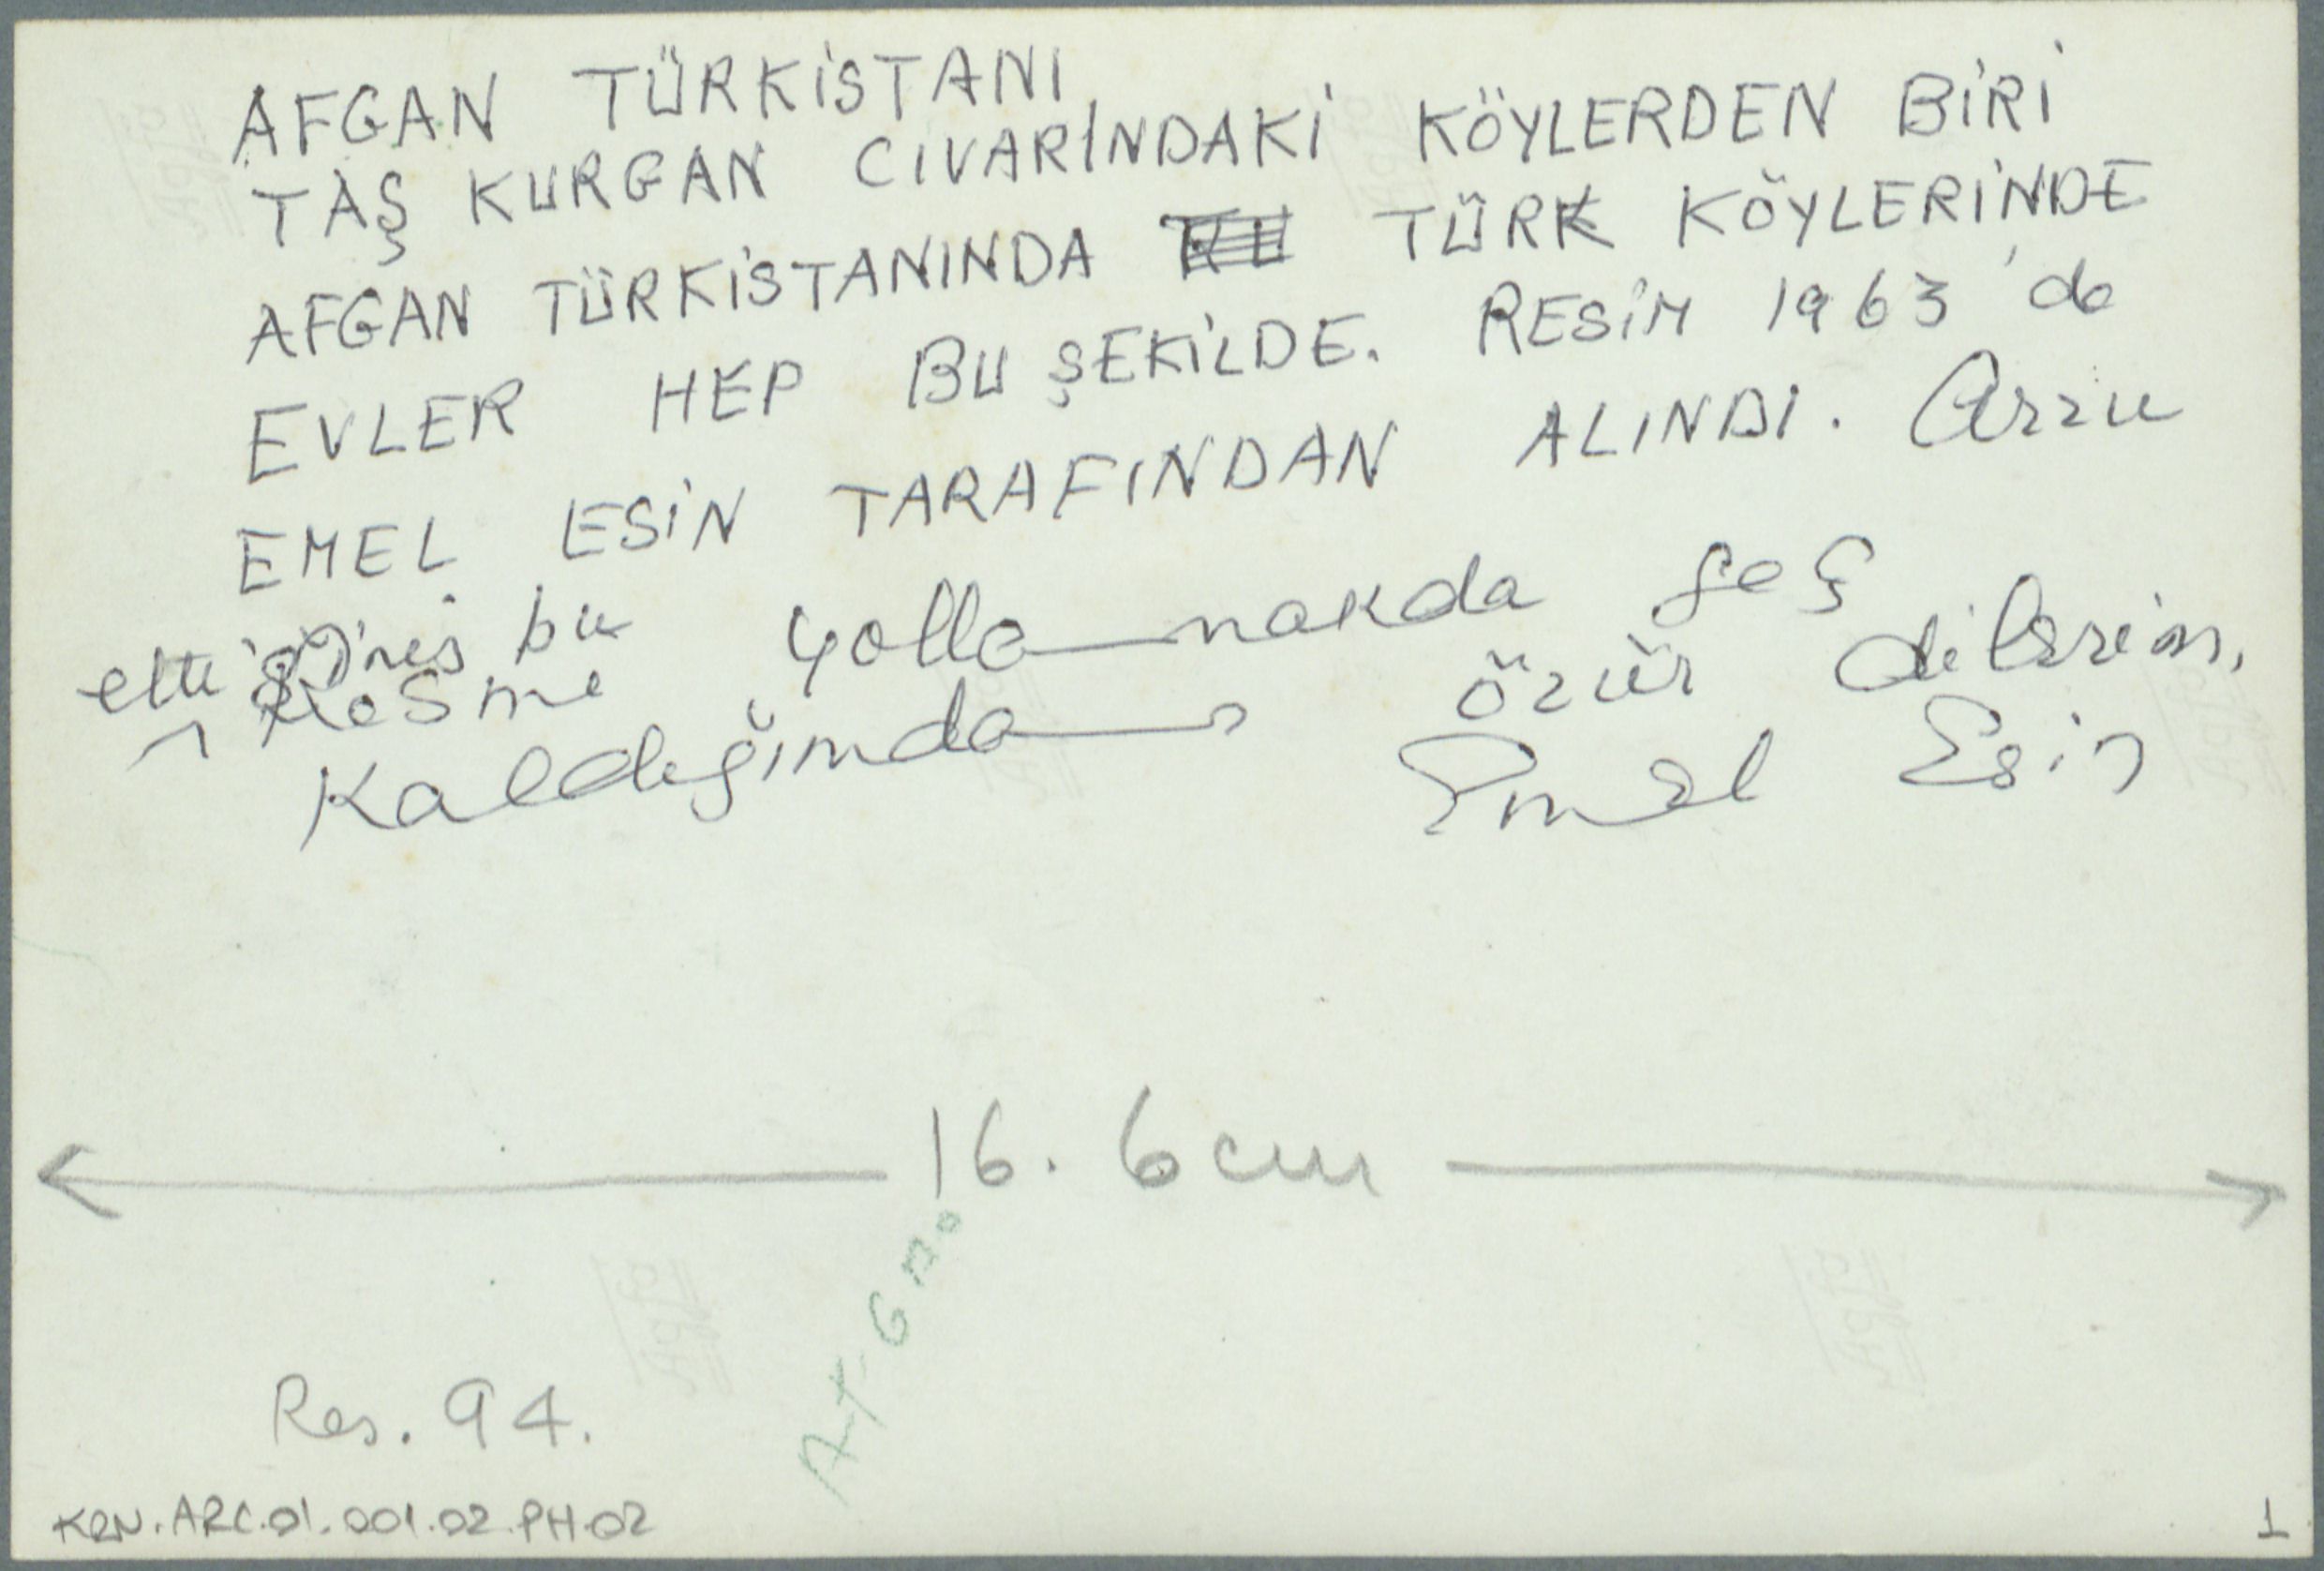 AFGAN TÜRKİSTANI
TAŞ KURGAN CIVARINDAKİ KÖYLERDEN BİRİ
AFGAN TÜRKİSTANINDA TÜRK KÖYLERİNDE
EVLER HEP BU ŞEKİLDE. RESİM 1963'de
EMEL ESİN TARAFINDAN ALINDI. Arzu
ettiğiniz bu
Resmi yollamakda geç
Kaldığımdan özür dilerim,
Emel Esin
16.6 cm
Res. 94.
KRN.ARC.01.001.02.PH.02
1